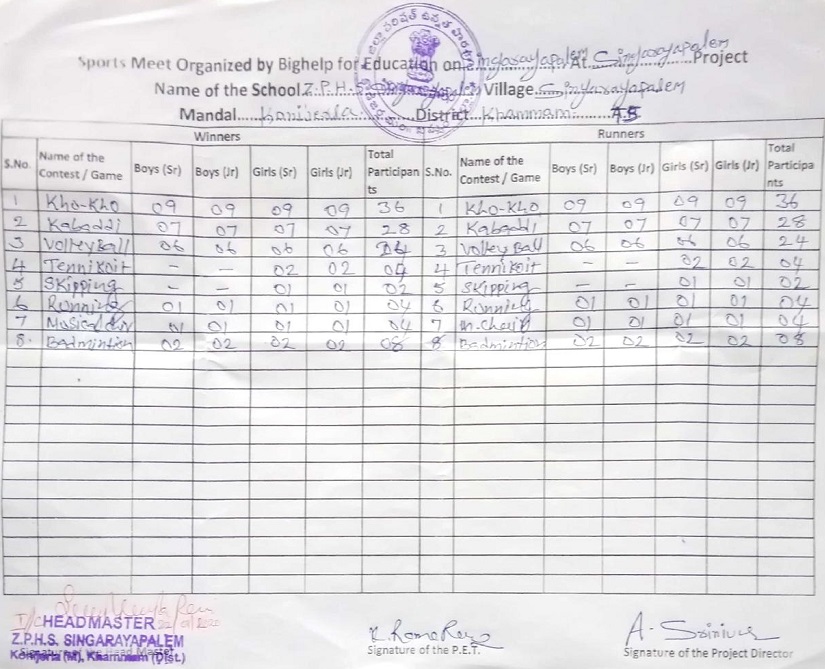 Sports Meet Organized by Bighelp for Education on Singarayapalem At Singarayapalem Project
Name of the School Z.P.H.S Village Singarayapalem
Mandal District Khammam
Winners Runners
S.No. Name of the Contest / Game Boys (Sr) Boys (Jr) Girls (Sr) Girls (Jr) Total Participants S.No. Name of the Contest / Game Boys (Sr) Boys (Jr) Girls (Sr) Girls (Jr) Total Participants
1 Kho-Kho 09 09 09 09 36 1 Kho-Kho 09 09 09 09 36
2 Kabaddi 07 07 07 07 28 2 Kabaddi 07 07 07 07 28
3 Volley Ball 06 06 06 06 24 3 Volley Ball 06 06 06 06 24
4 Tennikoit - - 02 02 04 4 Tennikoit - - 02 02 04
5 Skipping - - 01 01 02 5 Skipping - - 01 01 02
6 Running 01 01 01 01 04 6 Running 01 01 01 01 04
7 Musical 01 01 01 01 04 7 m.chair 01 01 01 01 04
8. Badmintion 02 02 02 02 08 8 Badmintion 02 02 02 02 08
I/C HEADMASTER
Z.P.H.S. SINGARAYAPALEM
Konijerla (M), Khammam (Dist.)
Signature of the Head Master
K. Rama Rao
Signature of the P.E.T.
A. Srinivas
Signature of the Project Director